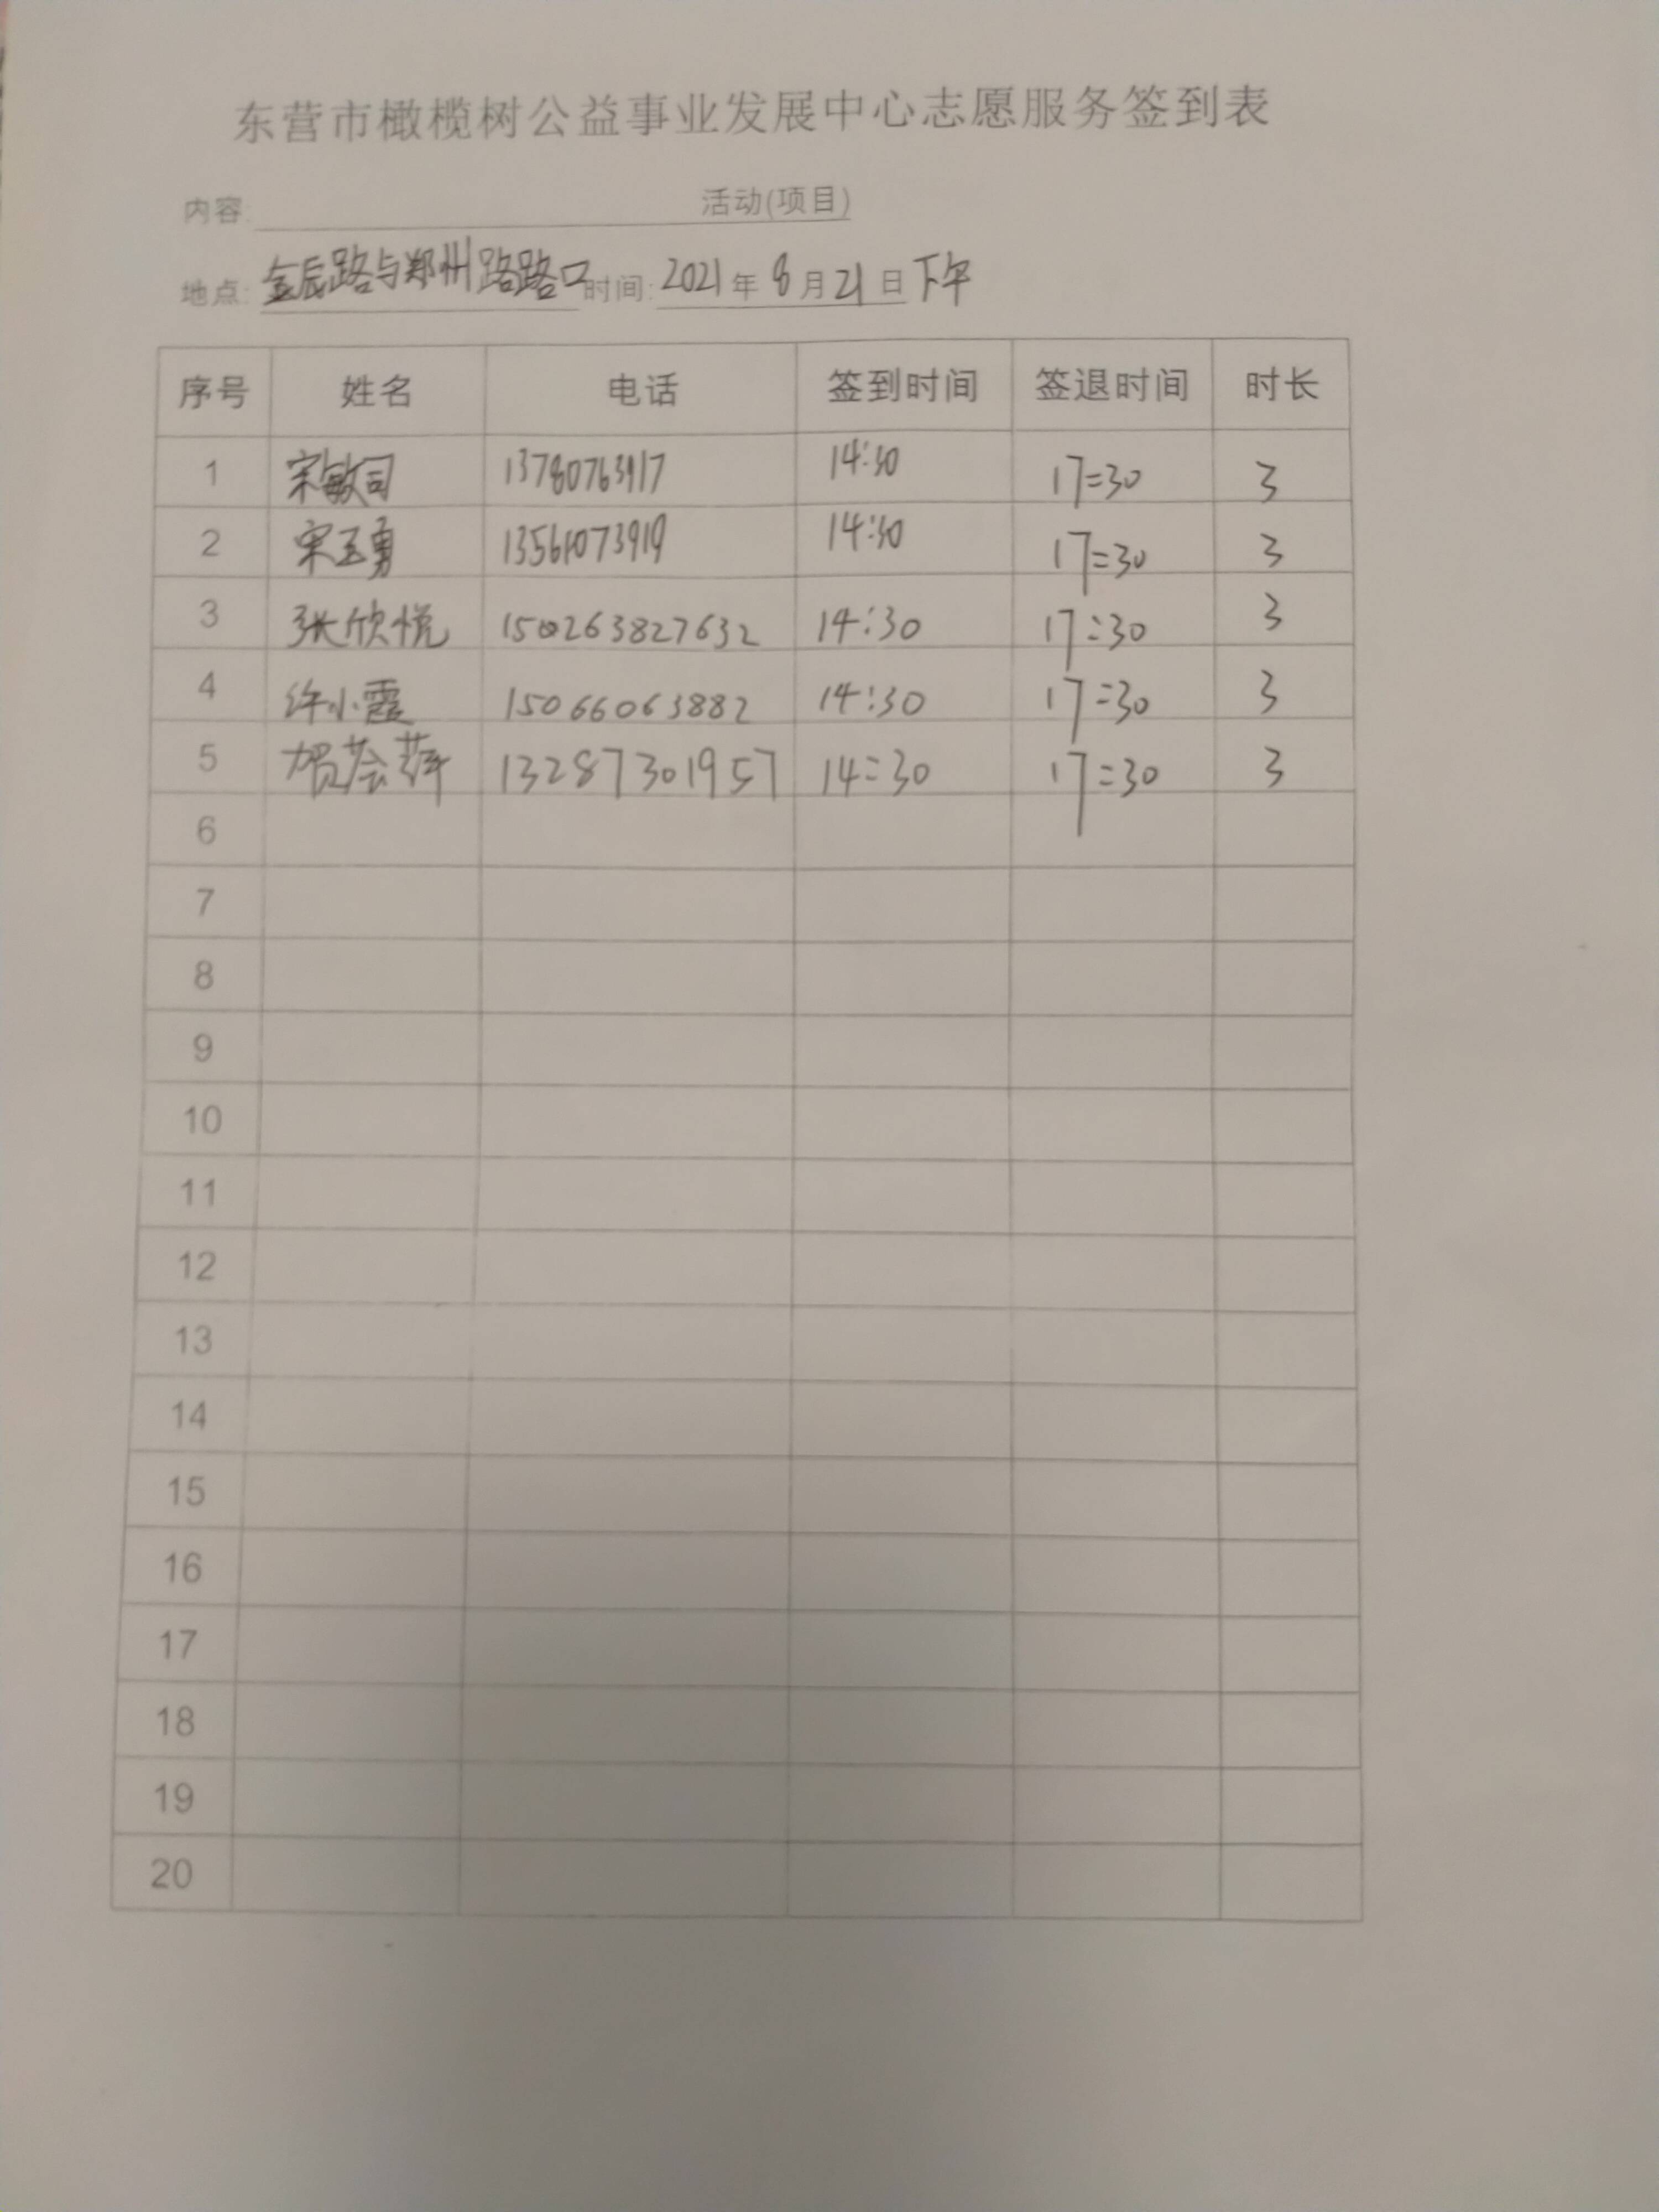 东营市橄榄树公益事业发展中心志愿服务签到表
内容: 活动(项目)
地点: 金辰路与郑州路路口 时间: 2021年8月21日下午
序号 姓名 电话 签到时间 签退时间 时长
1 宋敏司 13780763917 14:30 17:30 3
2 宋玉勇 13561073919 14:30 17:30 3
3 张欣悦 14:30 17:30 3
4 许小霞 15066063882 14:30 17:30 3
5 贺荟萍 13287301957 14:30 17:30 3
6
7
8
9
10
11
12
13
14
15
16
17
18
19
20